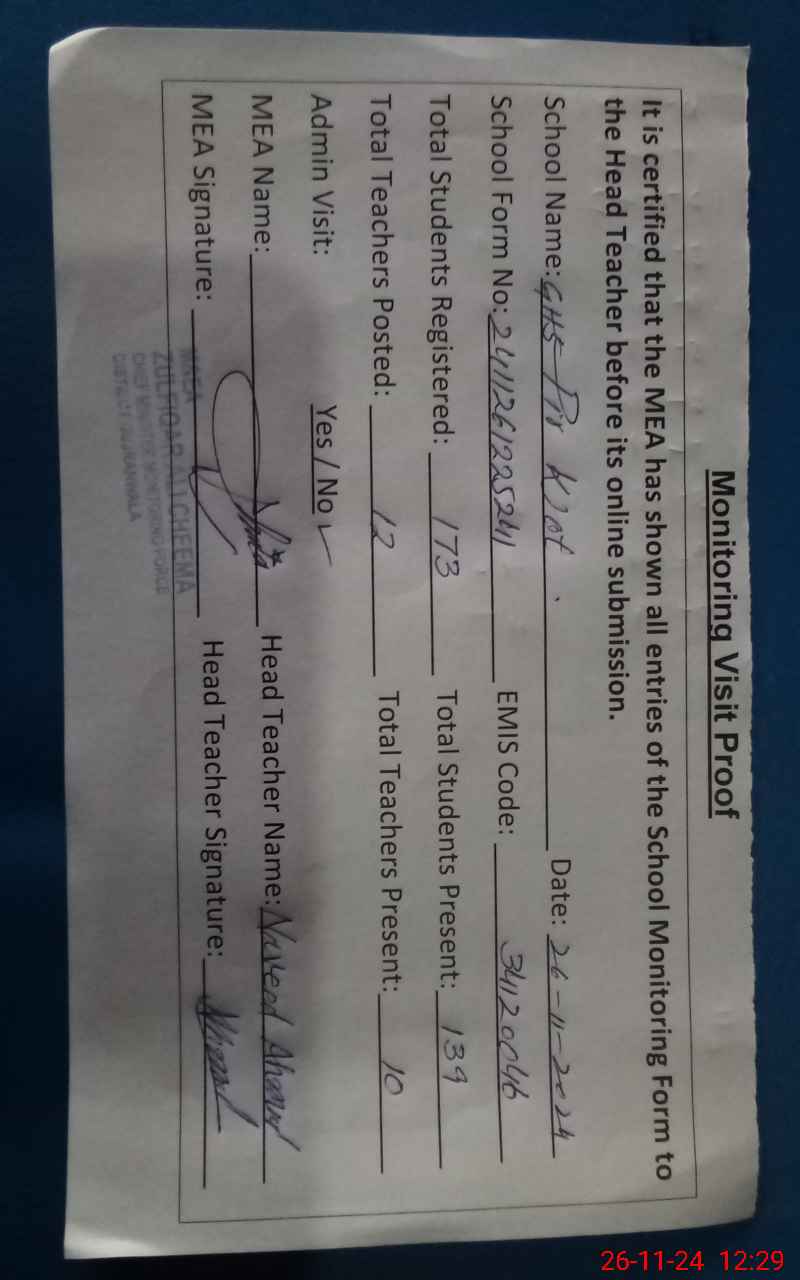 Monitoring Visit Proof
It is certified that the MEA has shown all entries of the School Monitoring Form to
the Head Teacher before its online submission.
School Name: GHS Pir Kot Date: 26-11-2024
School Form No: 241126122524 EMIS Code: 34120046
Total Students Registered: 173 Total Students Present: 139
Total Teachers Posted: 12 Total Teachers Present: 10
Admin Visit: Yes / No ✓
MEA Name: Head Teacher Name: Naveed Ahmad
MEA Signature: Head Teacher Signature:
MNEA
ZULFIQAR ALI CHEEMA
CHIEF MINISTER MONITORING FORCE
DISTRICT GUJRANWALA
26-11-24 12:29